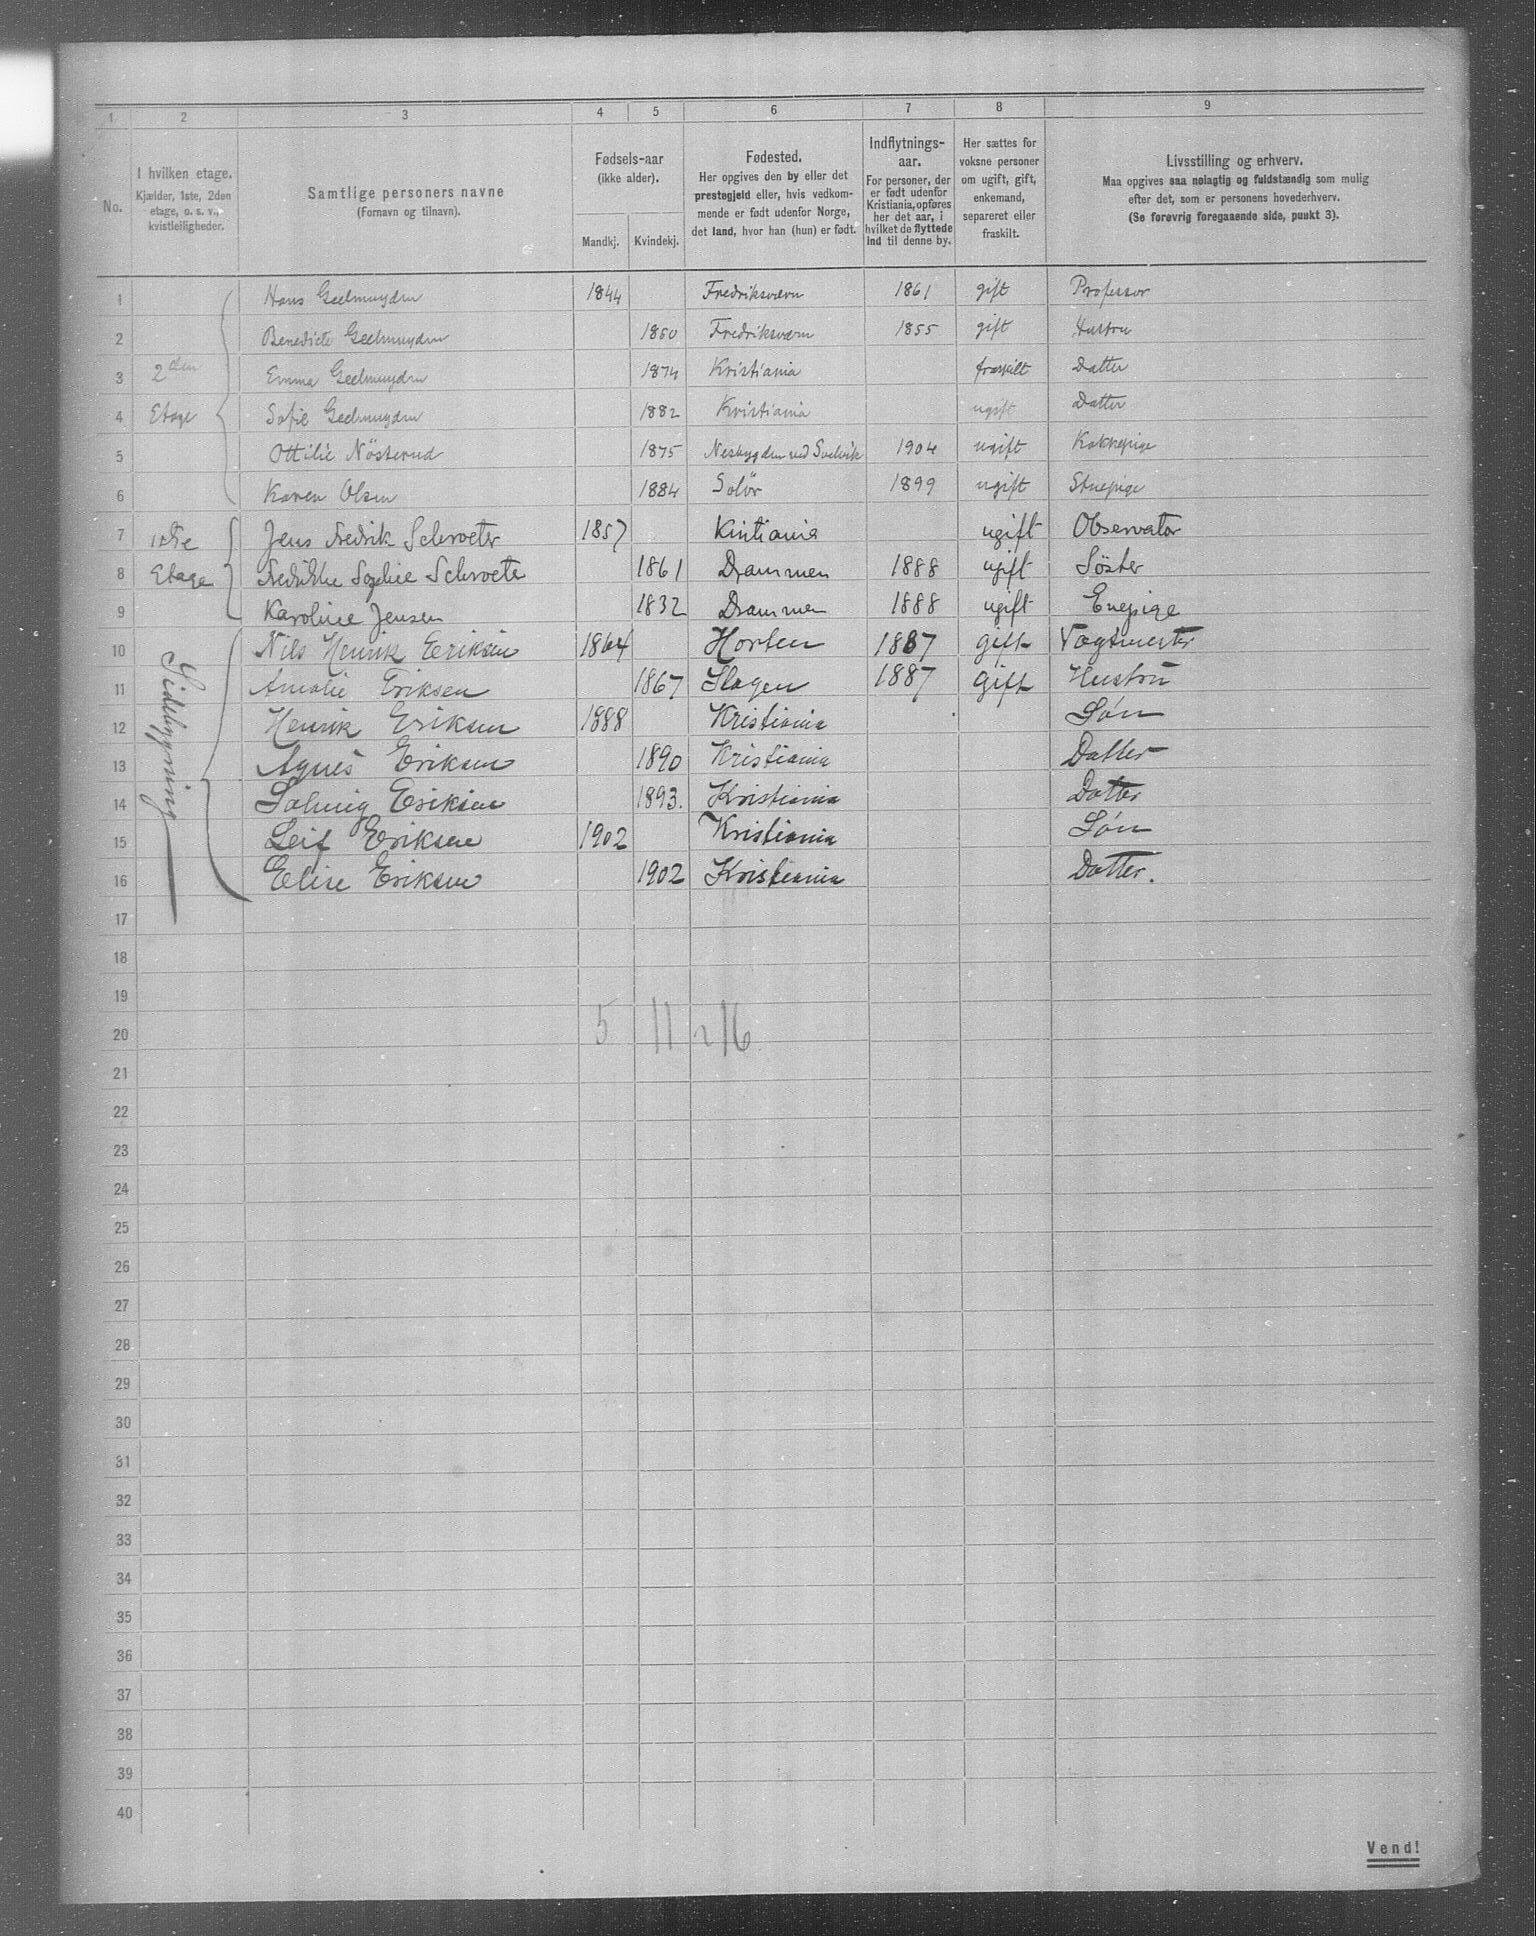 1 2 3 4 5 6 7 8 9
No.
I hvilken etage.
Kjælder, 1ste, 2den
etage, o. s. v.,
kvistleiligheder.
Samtlige personers navne
(Fornavn og tilnavn).
Fødsels-aar
(ikke alder).
Mandkj. Kvindekj.
Fødested.
Her opgives den by eller det
prestegjeld eller, hvis vedkom-
mende er født udenfor Norge,
det land, hvor han (hun) er født.
Indflytnings-
aar.
For personer, der
er født udenfor
Kristiania, opføres
her det aar, i
hvilket de flyttede
ind til denne by.
Her sættes for
voksne personer
om ugift, gift,
enkemand,
separeret eller
fraskilt.
Livsstilling og erhverv.
Maa opgives saa nøiagtig og fuldstændig som mulig
efter det, som er personens hovederhverv.
(Se forøvrig foregaaende side, punkt 3).
1 Hans Geelmuyden 1844 Fredriksværn 1861 gift Professor
2 Benedicte Geelmuyden 1850 Fredriksværn 1855 gift Hustru
3 2den Emma Geelmuyden 1874 Kristiania fraskilt Datter
4 Etage Sofie Geelmuyden 1882 Kristiania ugift Datter
5 Ottilie Nösterud 1875 Nesbygden ved Svelvik 1904 ugift Kokkepige
6 Karen Olsen 1884 Solör 1899 ugift Stuepige
7 1ste Jens Fredrik Schroeter 1857 Kristiania ugift Observator
8 Etage Fredrikke Sophie Schroeter 1861 Drammen 1888 ugift Söster
9 Karoline Jensen 1832 Drammen 1888 ugift Enepige
10 Sidebygning Nils Henrik Eriksen 1864 Horten 1887 gift Vagtmester
11 Amalie Eriksen 1867 Slagen 1887 gift Hustru
12 Henrik Eriksen 1888 Kristiania Søn
13 Agnes Eriksen 1890 Kristiania Datter
14 Solveig Eriksen 1893. Kristiania Datter
15 Leif Eriksen 1902 Kristiania Søn
16 Elise Eriksen 1902 Kristiania Datter.
17
18
19
20 5 11 16
21
22
23
24
25
26
27
28
29
30
31
32
33
34
35
36
37
38
39
40
Vend!